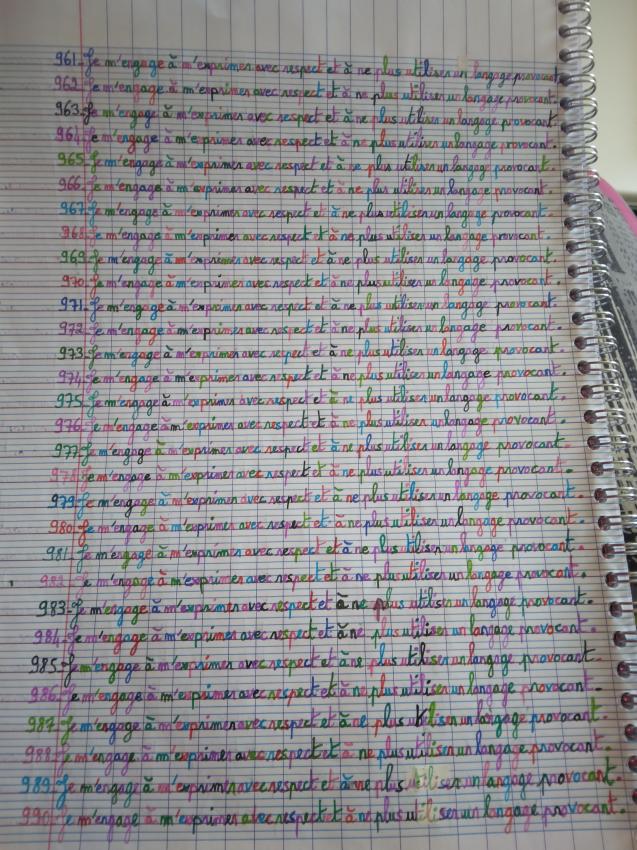 961. Je m'engage à m'exprimer avec respect et à ne plus utiliser un langage provocant
962. Je m'engage à m'exprimer avec respect et à ne plus utiliser un langage provocant.
963. Je m'engage à m'exprimer avec respect et à ne plus utiliser un langage provocant
964. Je m'engage à m'exprimer avec respect et à ne plus utiliser un langage provocant.
965. Je m'engage à m'exprimer avec respect et à ne plus utiliser un langage provocant.
966. Je m'engage à m'exprimer avec respect et à ne plus utiliser un langage provocant.
967. Je m'engage à m'exprimer avec respect et à ne plus utiliser un langage provocant.
968. Je m'engage à m'exprimer avec respect et à ne plus utiliser un langage provocant.
969. Je m'engage à m'exprimer avec respect et à ne plus utiliser un langage provocant.
970. Je m'engage à m'exprimer avec respect et à ne plus utiliser un langage provocant.
971. Je m'engage à m'exprimer avec respect et à ne plus utiliser un langage provocant.
972. Je m'engage à m'exprimer avec respect et à ne plus utiliser un langage provocant.
973. Je m'engage à m'exprimer avec respect et à ne plus utiliser un langage provocant.
974. Je m'engage à m'exprimer avec respect et à ne plus utiliser un langage provocant.
975. Je m'engage à m'exprimer avec respect et à ne plus utiliser un langage provocant.
976. Je m'engage à m'exprimer avec respect et à ne plus utiliser un langage provocant.
977. Je m'engage à m'exprimer avec respect et à ne plus utiliser un langage provocant.
978. Je m'engage à m'exprimer avec respect et à ne plus utiliser un langage provocant.
979. Je m'engage à m'exprimer avec respect et à ne plus utiliser un langage provocant.
980. Je m'engage à m'exprimer avec respect et à ne plus utiliser un langage provocant.
981. Je m'engage à m'exprimer avec respect et à ne plus utiliser un langage provocant.
982. Je m'engage à m'exprimer avec respect et à ne plus utiliser un langage provocant.
983. Je m'engage à m'exprimer avec respect et à ne plus utiliser un langage provocant.
984. Je m'engage à m'exprimer avec respect et à ne plus utiliser un langage provocant.
985. Je m'engage à m'exprimer avec respect et à ne plus utiliser un langage provocant.
986. Je m'engage à m'exprimer avec respect et à ne plus utiliser un langage provocant.
987. Je m'engage à m'exprimer avec respect et à ne plus utiliser un langage provocant.
988. Je m'engage à m'exprimer avec respect et à ne plus utiliser un langage provocant.
989. Je m'engage à m'exprimer avec respect et à ne plus utiliser un langage provocant.
990. Je m'engage à m'exprimer avec respect et à ne plus utiliser un langage provocant.